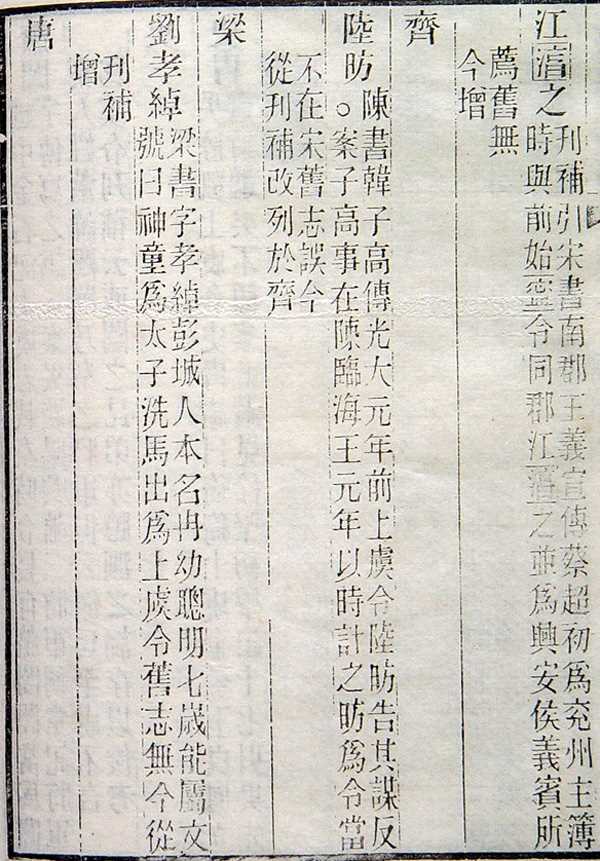 江湻之刊補引宋書南郡王義宣傳蔡超初爲兗州主簿
時與前始寧令同郡江湻之並爲興安侯義賓所
薦舊無
今增
齊
陸昉陳書韓子高傳光大元年前上虞令陸昉告其謀反
○案子高事在陳臨海王元年以時計之昉爲令當
不在宋舊志誤今
從刊補改列於齊
梁
劉孝綽梁書字孝綽彭城人本名冉幼聰明七歲能屬文
號曰神童爲太子洗馬出爲上虞令舊志無今從
刊補
增
唐